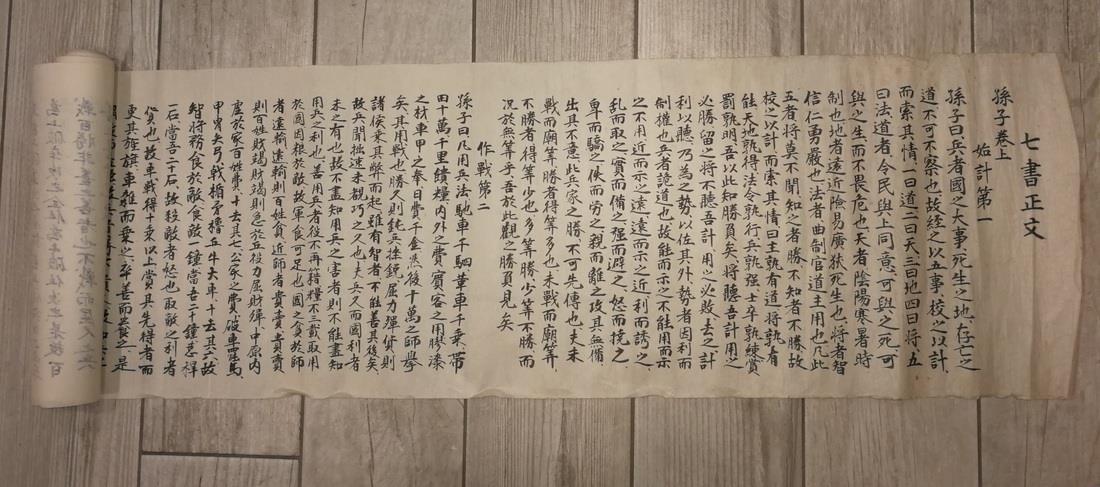 七書正文
孫子卷上
始計第一
孫子曰兵者國之大事死生之地存亡之
道不可不察也故経之以五事校之以計
而索其情一曰道二曰天三曰地四曰將五
曰法道者令民與上同意可與之死可
與之生而不畏危也天者陰陽寒暑時
制也地者遠近險易廣狹死生也將者智
信仁勇嚴也法者曲制官道主用也凡此
五者將莫不聞知之者勝不知者不勝故
校之以計而索其情曰主孰有道將孰有
能天地孰得法令孰行兵孰強士卒孰練賞
罰孰明吾以此知勝負矣將聽吾計用之
必勝留之將不聽吾計用之必敗去之計
利以聽乃為之勢以佐其外勢者因利而
制權也兵者詭道也故能而示之不能用而示
之不用近而示之遠遠而示之近利而誘之
乱而取之實而備之强而避之怒而撓之
卑而驕之佚而勞之親而離之攻其無備
出其不意此兵家之勝不可先傳也夫未
戰而廟筭勝者得筭多也未戰而廟筭
不勝者得筭少也多筭勝少筭不勝而
況於無筭乎吾於此觀之勝負見矣
作戰第二
孫子曰凡用兵法馳車千駟革車千乘帶
甲十萬千里饋糧內外之費賓客之用膠漆
之材車甲之奉日費千金然後十萬之師擧
矣其用戰也勝久則鈍兵挫銳屈力殫貨則
諸侯乗其弊而起雖有智者不能善其後矣
故兵聞拙速未覩巧之久也夫兵久而國利者
未之有也故不盡知用兵之害者則不能盡知
用兵之利也善用兵者役不再籍糧不三載取用
於國因粮於敵故軍食可足也國之貧於師
者遠輸遠輸則百姓貧近師者貴賣貴賣
則百姓財竭財竭則急於丘役力屈財殫中原內
虛於家百姓之費十去其七公家之費破車罷馬
甲冑矢弓戟楯矛櫓丘牛大車十去其六故
智將務食於敵食敵一鍾當吾二十鍾秆
一石當吾二十石故殺敵者怒也取敵之利者
貨也故車戰得十乘以上賞其先得者而
更其旌旗車雜而乗之卒善而養之是